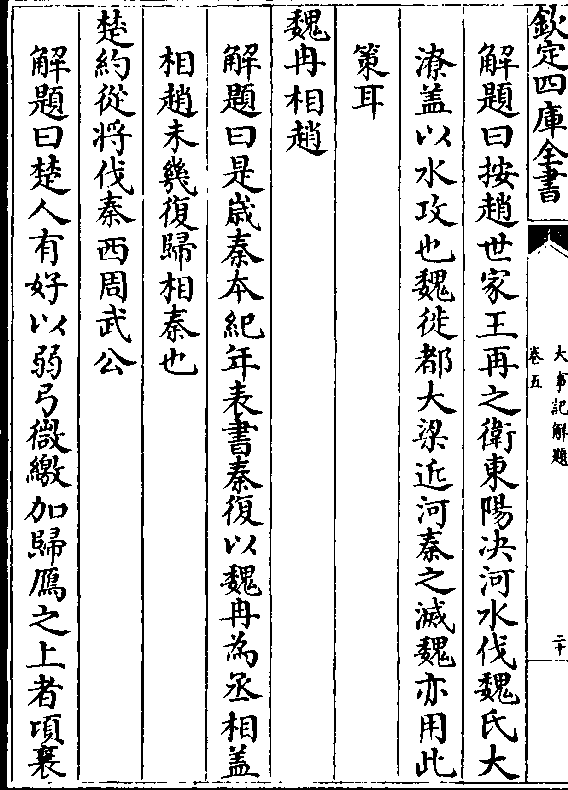 欽定四庫全書
大事記解題
卷五
二十
解題曰按趙世家王再之衛東陽决河水伐魏氏大
潦盖以水攻也魏徙都大梁近河秦之滅魏亦用此
策耳
魏冉相趙
解題曰是歳秦本紀年表書秦復以魏冉為丞相盖
相趙未幾復歸相秦也
楚約從将伐秦西周武公
解題曰楚人有好以弱弓微繳加歸鴈之上者項襄